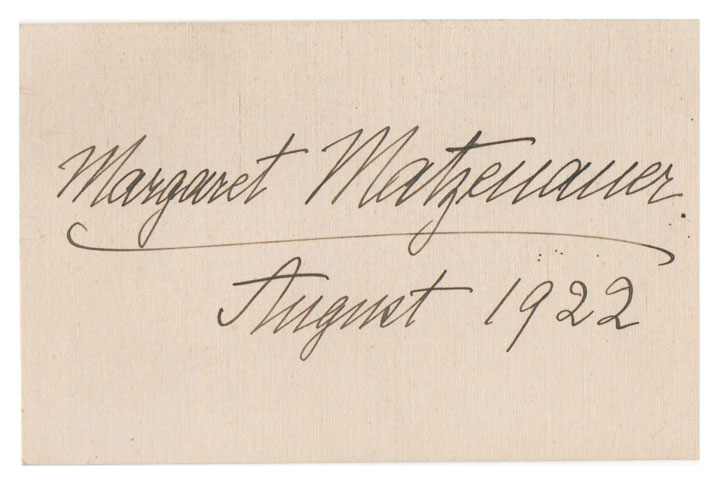 Margaret Matzenauer.
August 1922